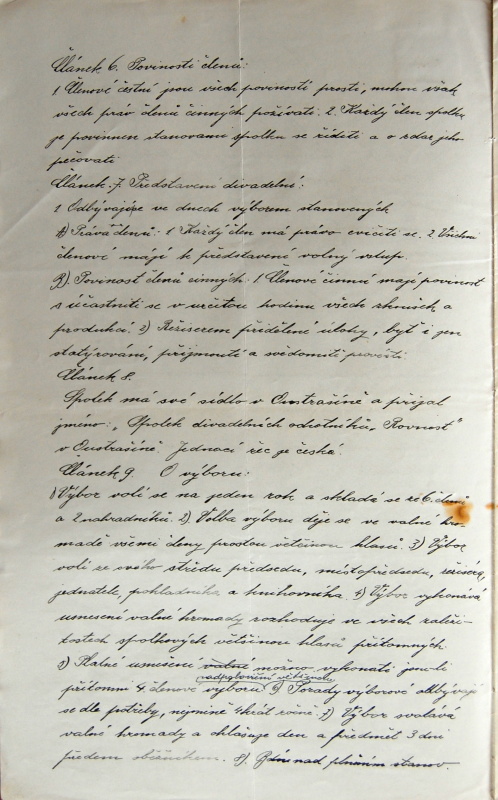 Článek 6. Povinosti členů:
1 Členové čestní jsou všech povinností prosti, mohou však
všech práv členů činných požívati. 2. Každý člen spolku
je povinnen stanovami spolku se říditi a o zdar jeho
pečovati
Článek 7. Představení divadelní:
1 Odbývají se ve dnech výborem stanovených
A) Práva členů: 1 Každý člen má právo cvičiti se. 2. Všichni
členové mají k představení volný vstup.
B). Povinost členů činných: 1. Členové činní mají povinost
súčastniti se v určitou hodinu všech zkoušek a
produkcí. 2) Režiserem přidělené úlohy, byť i jen
statýrování, přijmouti a svědomitě provésti
Článek 8.
Spolek má své sídlo v Onstrašíně a přijal
jméno: „Spolek divadelních ochotníků „Rovnost"
v Onstrašíně. Jednací řeč je česká.
Článek 9. O výboru:
1) Výbor volí se na jeden rok a skládá se ze 6. členů
a 2 nahradníků. 2). Volba výboru děje se ve valné hro-
madě všemi členy prostou většinou hlasů. 3) Výbor
volí ze svého středu předsedu, místopředsedu, režiséra,
jednatele, pokladníka a knihovníka. 4) Výbor vykonává
usnesení valné hromady rozhoduje ve všech záleži-
tostech spolkových většinou hlasů přítomných.
5) Platné usnešení možno vykonati jsou-li
nadpoloviční většinou
přítomni 4. členové výboru. 6) Porady výborové odbývají
se dle potřeby, nejméně 4krát ročně. 7) Výbor svolává
valné hromady a ohlašuje den a předmět 3 dni
předem oběžníkem. 8). nad plněním stanov.